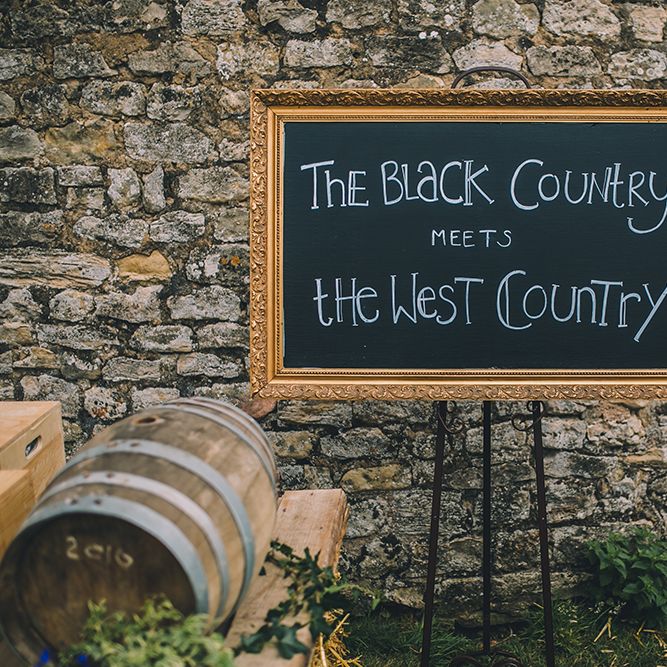 The Black Country
MEETS
the West Country
2016